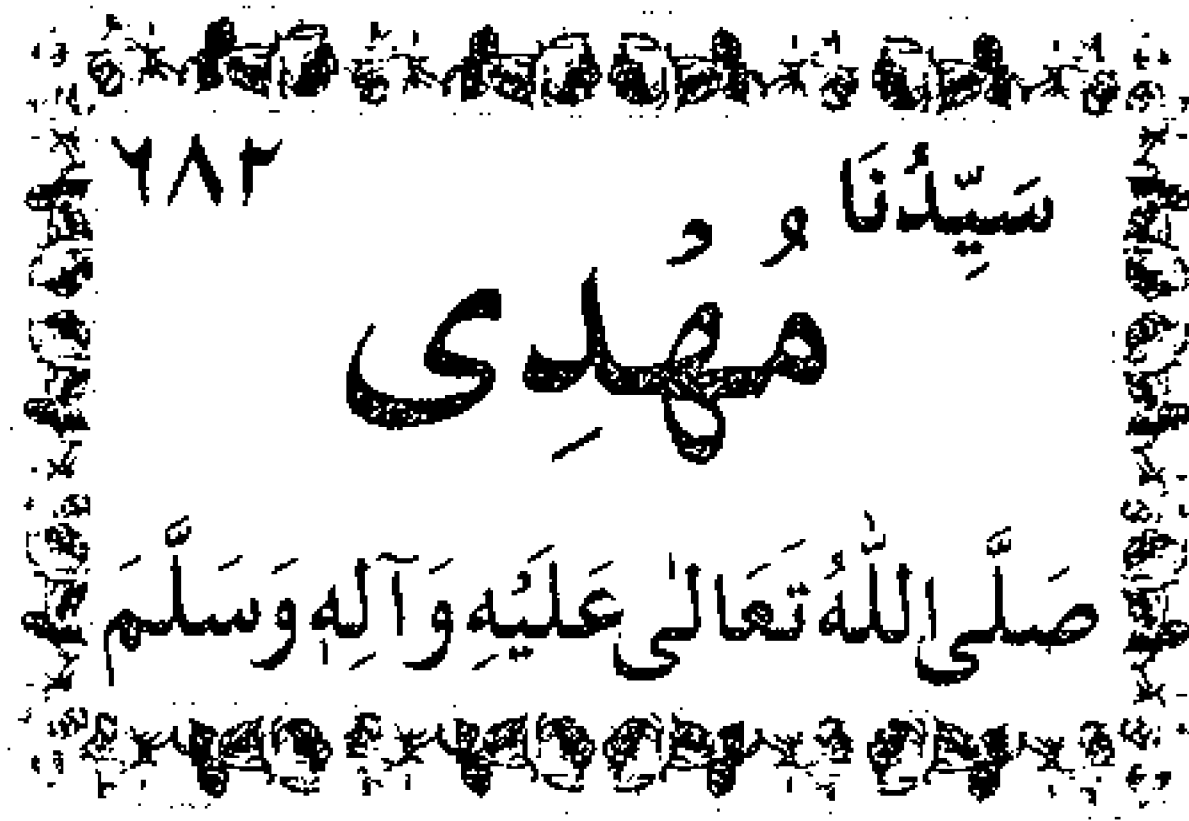 سَيِّدُنَا ٦٨٢
مُهْدِى
صَلَّى اللّٰهُ تَعَالٰى عَلَيْهِ وَآلِهٖ وَسَلَّمَ